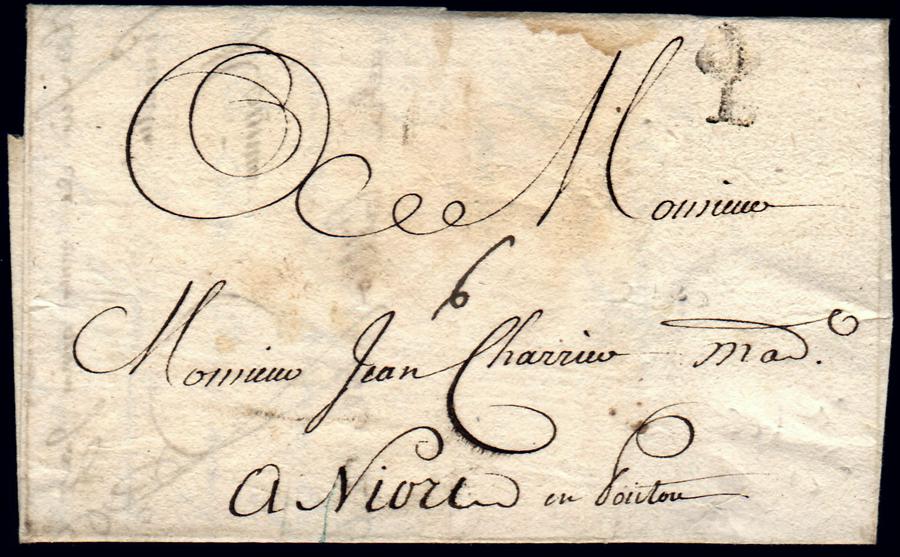 L
Monsieur
6
Monsieur Jean Charrier Mad.
A Niort en Poitou